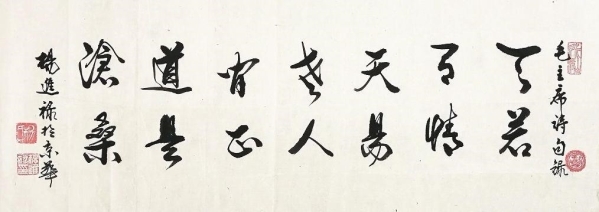 毛主席诗句录
天若
有情
天易
老人
间正
道是
滄桑
楊進禄於京華